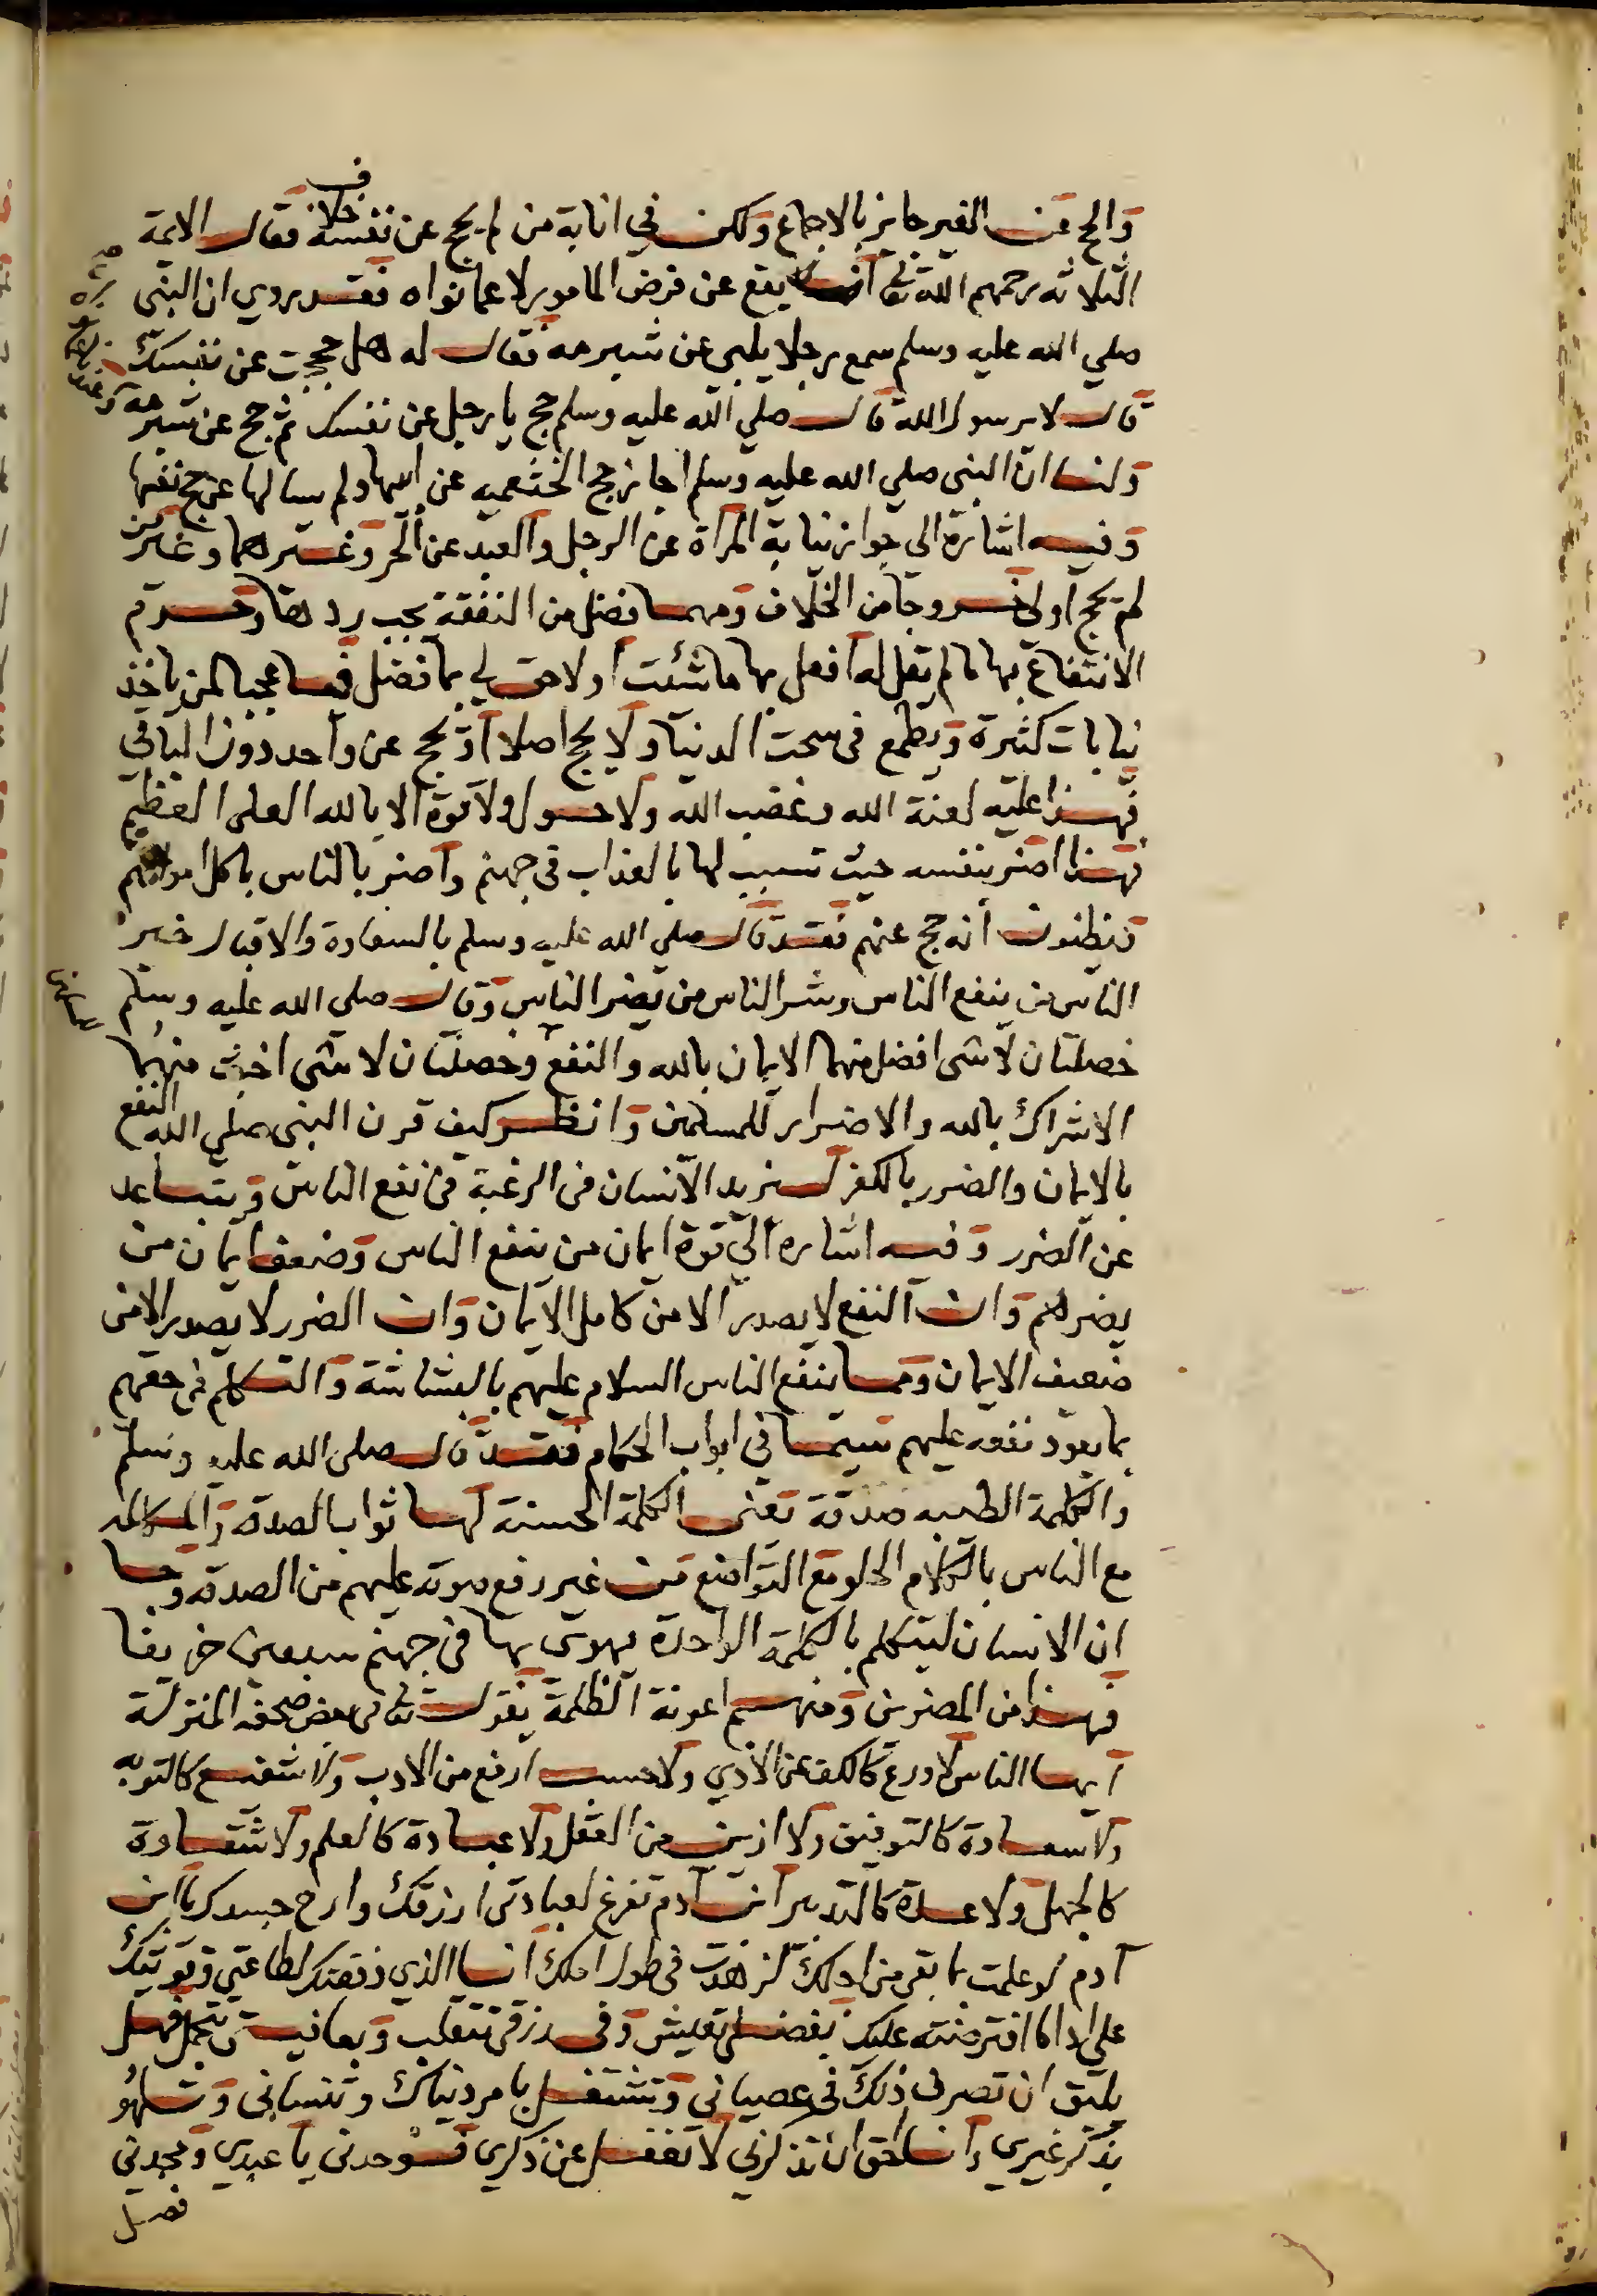 والحج عن الغير جايز بالاجماع ولكن في انابة من لم يحج عن نفسه خلاف فقال الايمة
الثلاثة رحمهم الله تعا انه يقع عن فرض المامور لا عما نواه فقد روي ان النبي
صلي الله عليه وسلم سمع رجلا يلبي عن شبرمة فقال له هل حججت عن نفسك
قال لا يرسول الله قال صلي الله عليه وسلم حج يا رجل عن نفسك ثم حج عن شبرمة
ولنا ان النبي صلي الله عليه وسلم اجاز حج الخثعميه عن ابيها ولم يسالها عن حج نفسها
وفيه اشارة الي جواز نيابة المرأة عن الرجل والعبد عن الحر وغيرهما وغير من
لم يحج اولى خروجا من الخلاف ومهما فضل من النفقة يجب ردها وحرم
الانتفاع بها ما لم يقل له افعل بها ما شئت او لا حق لي بما فضل فيا عجبا لمن ياخذ
نيابات كثيرة ويطمع في سحت الدنيا ولا يحج اصلا او يحج عن واحد دون الباقي
فهذا عليه لعنة الله وغضب الله ولا حول ولا قوة الا بالله العلى العظيم
فهذا اضر بنفسه حيث تسبب لها بالعذاب في جهنم واضر بالناس باكل اموالهم
فيظنون انه حج عنهم فقد قال صلي الله عليه وسلم بالسعادة والاقبال خير
الناس من ينفع الناس وشر الناس من يضر الناس وقال صلى الله عليه وسلم
خصلتان لا شى افضل منهما الايمان بالله والنفع وخصلتان لا شى اخبث منهما
الاشراك بالله والاضرار للمسلمين وانظر كيف قرن النبي صلي الله النفع
بالايمان والضرر بالكفر ليزيد الانسان في الرغبة في نفع الناس ويتباعد
عن الضرر وفيه اشاره الي قوة ايمان من ينفع الناس وضعف ايمان من
يضرهم وان النفع لا يصدر الا من كامل الايمان وان الضرر لا يصدر الا من
ضعيف الايمان ومما ينفع الناس السلام عليهم بالبشاشة والتكلم في حقهم
بما يعود نفعه عليهم سيما في ابواب الحكام فقد قال صلى الله عليه وسلم
والكلمة الطيبه صدقة يعنى الكلمة الحسنة لها ثواب الصدقة والمكالمه
مع الناس بالكلام الحلو مع التواضع من غير رفع صوته عليهم من الصدقه وجا
ان الانسان ليتكلم بالكلمة الواحدة يهوى بها في جهنم سبعين خريفا
فهذا من المضرين ومنهم اعونة الظلمة يقول تعالى في بعض صحفه المنزلة
ايها الناس لا ورع كالكف عن الأذي ولا حسب ارفع من الادب ولا شفيع كالتوبه
ولا سعادة كالتوفيق ولا ازين من العقل ولا عبادة كالعلم ولا شقاوة
كالجهل ولا عبادة كالتدبير ابن آدم تفرغ لعبادتي ارزقك وارح جسدك يا ابن
آدم لو علمت ما بقي من اجلك لزهدت في طول املك انا الذي وفقتك لطاعتي وقويتك
على اداء ما افترضته عليك بفضلي تعيش وفي رزقي تتقلب وبعافيتي تتجمل فهل
يليق ان تصرف ذلك في عصياني وتشتغل بامر دنياك وتنساني وتلهو
بذكر غيري وانا احق ان تذكرني لا تغفل عن ذكري فوحدني يا عبدي ومجدني
فصل